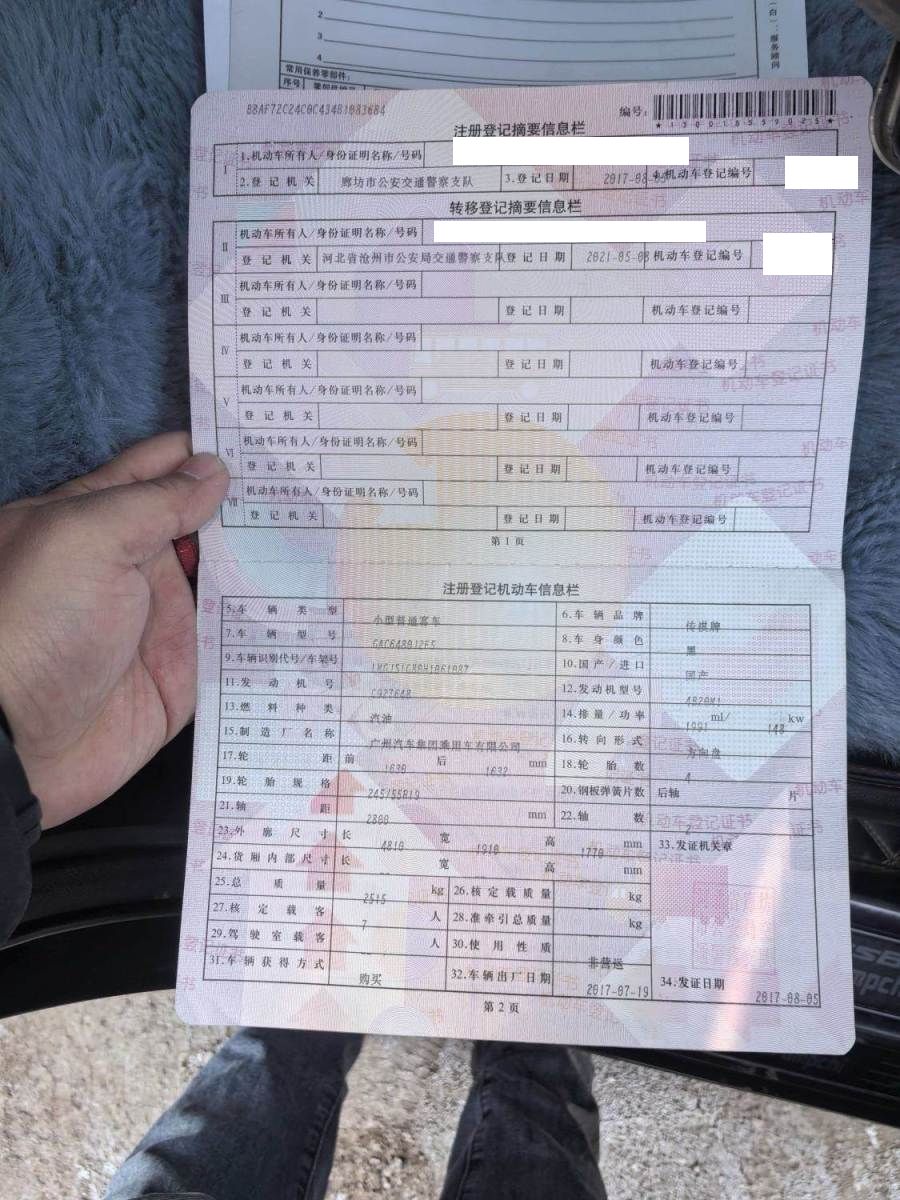 2
3
4
常用保养零部件：
序号
编号：
注册登记摘要信息栏
I
1.机动车所有人/身份证明名称/号码
2.登记机关 廊坊市公安交通警察支队 3.登记日期 2017-08-05 4.机动车登记编号
转移登记摘要信息栏
II
机动车所有人/身份证明名称/号码
登记机关 河北省沧州市公安局交通警察支队 登记日期 2021-05-08 机动车登记编号
III
机动车所有人/身份证明名称/号码
登记机关 登记日期 机动车登记编号
IV
机动车所有人/身份证明名称/号码
登记机关 登记日期 机动车登记编号
V
机动车所有人/身份证明名称/号码
登记机关 登记日期 机动车登记编号
VI
机动车所有人/身份证明名称/号码
登记机关 登记日期 机动车登记编号
VII
机动车所有人/身份证明名称/号码
登记机关 登记日期 机动车登记编号
第1页
注册登记机动车信息栏
5.车辆类型 小型普通客车 6.车辆品牌 传祺牌
7.车辆型号 8.车身颜色 黑
9.车辆识别代号/车架号 10.国产/进口 国产
11.发动机号 12.发动机型号
13.燃料种类 汽油 14.排量/功率 1991 ml/ 148 kw
15.制造厂名称 广州汽车集团乘用车有限公司 16.转向形式 方向盘
17.轮距 前 1630 后 1632 mm 18.轮胎数 4
19.轮胎规格 245/55R19 20.钢板弹簧片数 后轴 片
21.轴距 2800 mm 22.轴数 2
23.外廓尺寸 长 4810 宽 1910 高 1770 mm 33.发证机关章
24.货厢内部尺寸 长 宽 高 mm
25.总质量 2515 kg 26.核定载质量 kg
27.核定载客 7 人 28.准牵引总质量 kg
29.驾驶室载客 人 30.使用性质 非营运
31.车辆获得方式 购买 32.车辆出厂日期 2017-07-19 34.发证日期 2017-08-05
第2页